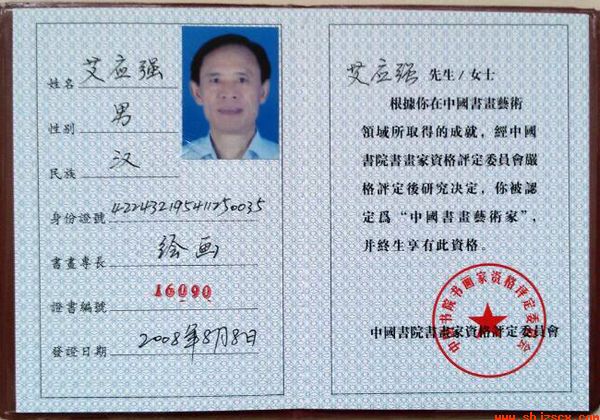 姓名 艾应强
性别 男
民族 汉
身份證號 422432195411250035
書畫專長 绘画
證書編號 16090
發證日期 2008年8月8日
艾应强 先生/女士
根據你在中國書畫藝術
領域所取得的成就，經中國
書院書畫家資格評定委員會嚴
格評定後研究决定，你被認
定爲“中國書畫藝術家”，
并終生享有此資格。
中國書院書畫家資格評定委員會